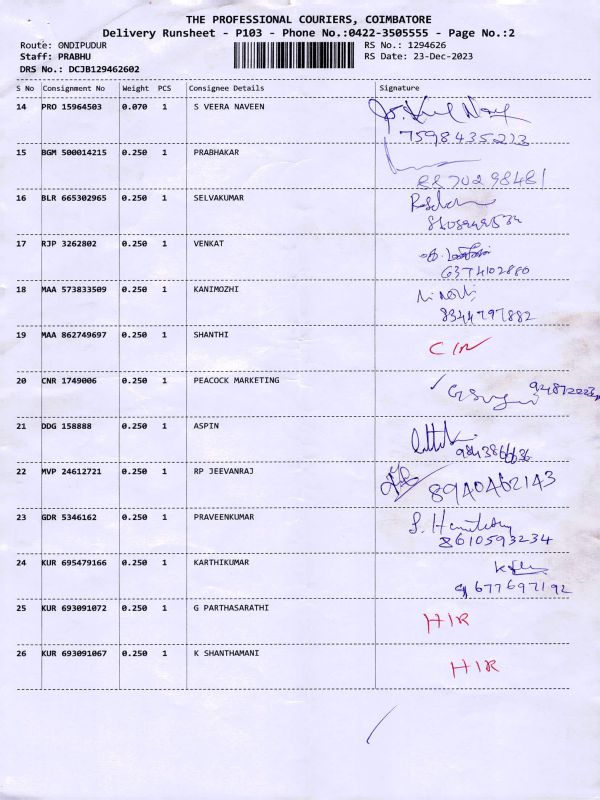 THE PROFESSIONAL COURIERS, COIMBATORE
Delivery Runsheet - P103 - Phone No.:0422-3505555 - Page No.:2
Route: ONDIPUDUR RS No.: 1294626
Staff: PRABHU RS Date: 23-Dec-2023
DRS No.: DCJB129462602
S No Consignment No Weight PCS Consignee Details Signature
14 PRO 15964503 0.070 1 S VEERA NAVEEN
7598435223
15 BGM 500014215 0.250 1 PRABHAKAR
8870298481
16 BLR 665302965 0.250 1 SELVAKUMAR
17 RJP 3262802 0.250 1 VENKAT
6374102880
18 MAA 573833509 0.250 1 KANIMOZHI
8344797882
19 MAA 862749697 0.250 1 SHANTHI
20 CNR 1749006 0.250 1 PEACOCK MARKETING
21 DDG 158888 0.250 1 ASPIN
22 MVP 24612721 0.250 1 RP JEEVANRAJ
8940462143
23 GDR 5346162 0.250 1 PRAVEENKUMAR
8610593234
24 KUR 695479166 0.250 1 KARTHIKUMAR
9677697192
25 KUR 693091072 0.250 1 G PARTHASARATHI HIR
26 KUR 693091067 0.250 1 K SHANTHAMANI HIR